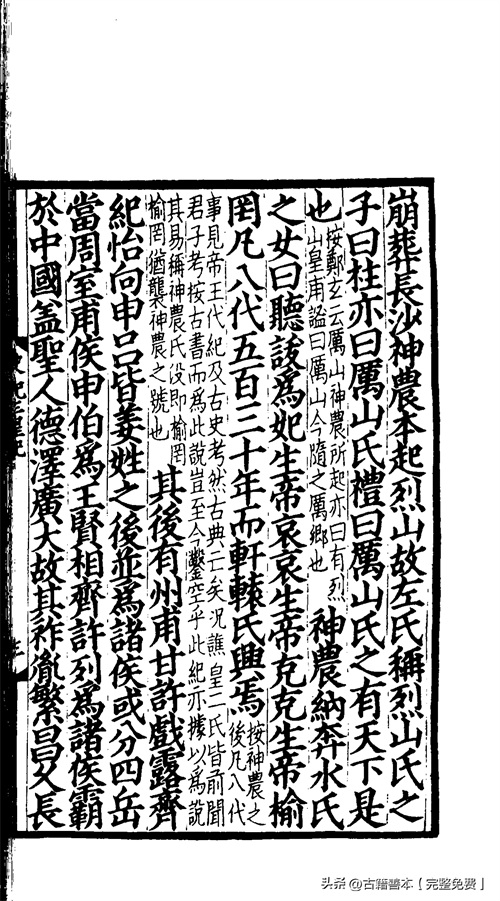 崩葬長沙神農本起烈山故左氏稱烈山氏之
子曰柱亦曰厲山氏禮曰厲山氏之有天下是
也
按鄭玄云厲山神農所起亦曰有烈
山皇甫謐曰厲山今隨之厲鄉也
神農納奔水氏
之女曰聽詙爲妃生帝哀哀生帝克克生帝榆
罔凡八代五百三十年而軒轅氏興焉
按神農之
後凡八代
事見帝王代紀及古史考然古典亡矣況譙皇二氏皆前聞
君子考按古書而爲此說豈至今鑿空乎此紀亦據以爲說
其易稱神農氏没即榆罔
榆罔猶襲神農之號也
其後有州甫甘許戲露齊
紀怡向申呂皆姜姓之後並爲諸侯或分四岳
當周室甫侯申伯爲王賢相齊許列爲諸侯霸
於中國盖聖人德澤廣大故其祚胤繁昌久長
头条@古籍善本【完整免费】